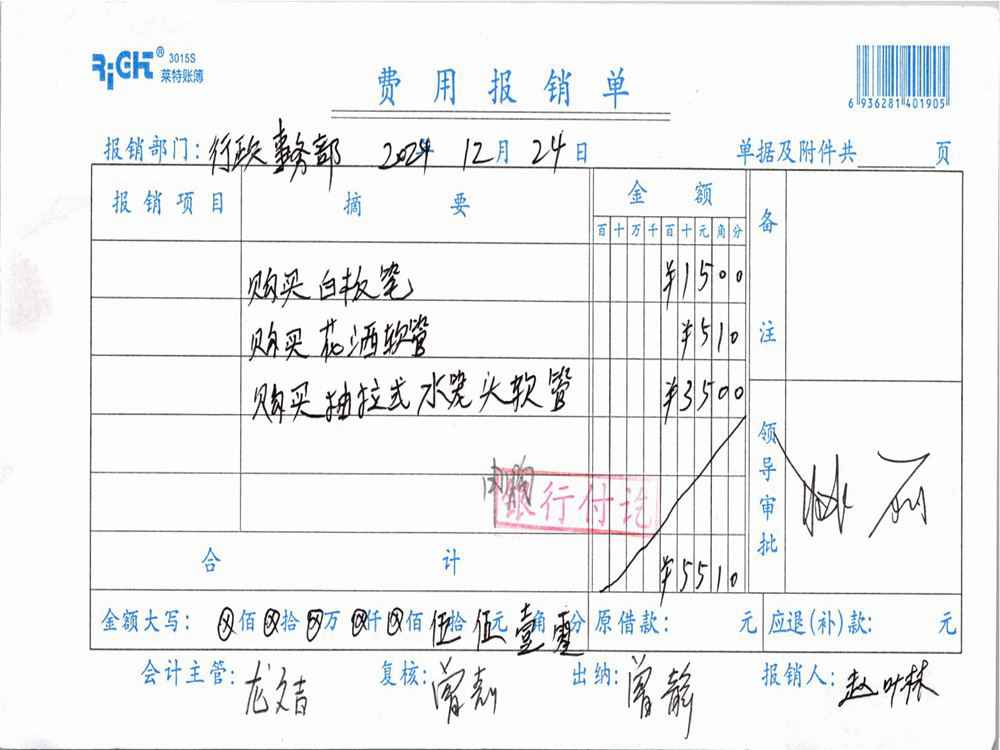 RiGHT® 3015S
莱特账簿
费用报销单
6 936281 401905
报销部门：行政事务部 2024 12月 24日 单据及附件共 页
报销项目 摘要 金额 备注
百十万千百十元角分
购买白板笔 ¥1500
购买花洒软管 ¥510
购买抽拉式水笼头软管 ¥3500
领导审批
银行付讫
合计 ¥5510
金额大写：ⓧ佰ⓧ拾ⓧ万ⓧ仟ⓧ佰伍拾伍元壹角零分 原借款： 元 应退(补)款： 元
会计主管：龙文吉 复核：曾 出纳：曾静 报销人：赵叶林